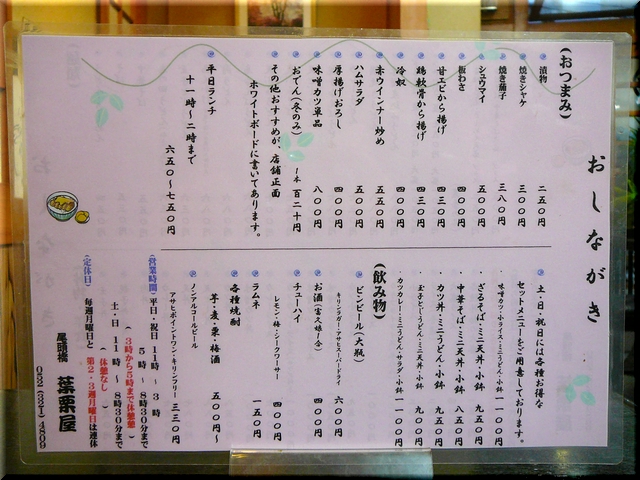 おしながき
(おつまみ)
漬物 二五〇円
焼きシャケ 三〇〇円
焼き餃子 三八〇円
シュウマイ 五〇〇円
板わさ 四〇〇円
甘エビから揚げ 四三〇円
鶏軟骨から揚げ 四三〇円
冷奴 四〇〇円
赤ウインナー炒め 五五〇円
ハムサラダ 五〇〇円
厚揚げおろし 四〇〇円
味噌カツ単品 八〇〇円
おでん(冬のみ) 1本 百二十円
その他おすすめが、店舗正面
ホワイトボードに書いてあります。
平日ランチ
十一時〜二時まで
六五〇〜七五〇円
土・日・祝日には各種お得な
セットメニューをご用意しております。
味噌カツ・小ライス・ミニうどん・小鉢 一一〇〇円
ざるそば・ミニ天丼・小鉢 九五〇円
中華そば・ミニ天丼・小鉢 八五〇円
カツ丼・ミニうどん・小鉢 九五〇円
玉子とじうどん・ミニ天丼・小鉢 九〇〇円
カツカレー・ミニうどん・サラダ・小鉢 一一〇〇円
(飲み物)
ビンビール(大瓶)
キリンラガー・アサヒスーパードライ 六〇〇円
お酒(富久娘一合) 四〇〇円
チューハイ
レモン・梅・シークワーサー 四〇〇円
ラムネ 一五〇円
各種焼酎
芋・麦・栗・梅酒 五〇〇円〜
ノンアルコールビール
アサヒポイントワン・キリンフリー 三三〇円
(営業時間) 平日・祝日 11時 〜 3時
5時 〜 8時30分まで
(3時から5時まで休憩)
土・日 11時 〜 8時30分まで
(休憩なし)
(定休日) 毎週月曜日と 第2・3週月曜日は連休
尾頭橋 葉栗屋
052(321)4809